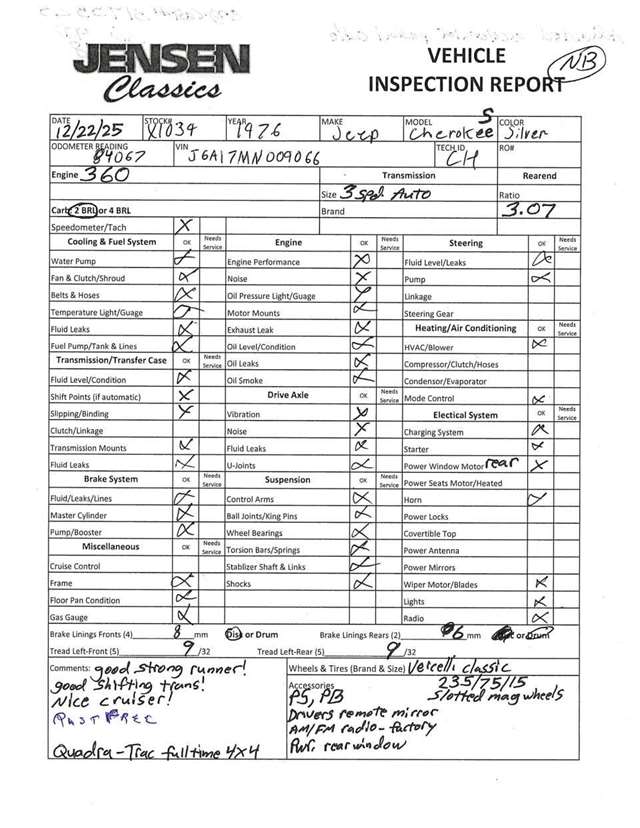 JENSEN
Classics
VEHICLE
INSPECTION REPORT
NB
DATE 12/22/25 STOCK# X1034 YEAR 1976 MAKE Jeep MODEL Cherokee S COLOR Silver
ODOMETER READING 84067 VIN J6A17MN009066 TECH ID CH RO#
Engine 360 Transmission Rearend
Size 3 spd Auto Ratio
Carb 2 BRL or 4 BRL Brand 3.07
Speedometer/Tach X
Cooling & Fuel System OK Needs Service Engine OK Needs Service Steering OK Needs Service
Water Pump X Engine Performance X Fluid Level/Leaks X
Fan & Clutch/Shroud X Noise X Pump X
Belts & Hoses X Oil Pressure Light/Guage X Linkage
Temperature Light/Guage X Motor Mounts X Steering Gear
Fluid Leaks X Exhaust Leak X Heating/Air Conditioning OK Needs Service
Fuel Pump/Tank & Lines X Oil Level/Condition X HVAC/Blower X
Transmission/Transfer Case OK Needs Service Oil Leaks X Compressor/Clutch/Hoses
Fluid Level/Condition X Oil Smoke X Condensor/Evaporator
Shift Points (if automatic) X Drive Axle OK Needs Service Mode Control X
Slipping/Binding X Vibration X Electical System OK Needs Service
Clutch/Linkage Noise X Charging System X
Transmission Mounts X Fluid Leaks X Starter X
Fluid Leaks X U-Joints X Power Window Motor rear X
Brake System OK Needs Service Suspension OK Needs Service Power Seats Motor/Heated
Fluid/Leaks/Lines X Control Arms X Horn X
Master Cylinder X Ball Joints/King Pins X Power Locks
Pump/Booster X Wheel Bearings X Covertible Top
Miscellaneous OK Needs Service Torsion Bars/Springs X Power Antenna
Cruise Control Stablizer Shaft & Links X Power Mirrors
Frame X Shocks X Wiper Motor/Blades X
Floor Pan Condition X Lights X
Gas Gauge X Radio X
Brake Linings Fronts (4) 8 mm Disc or Drum Brake Linings Rears (2) 6 mm or Drum
Tread Left-Front (5) 9 /32 Tread Left-Rear (5) 9 /32
Comments: good strong runner!
good shifting trans!
Nice cruiser!
Quadra-Trac full time 4x4
Wheels & Tires (Brand & Size) Vercelli classic
235/75/15
Slotted mag wheels
Accessories
PS, PB
Drivers remote mirror
AM/FM radio - factory
Pwr. rear window